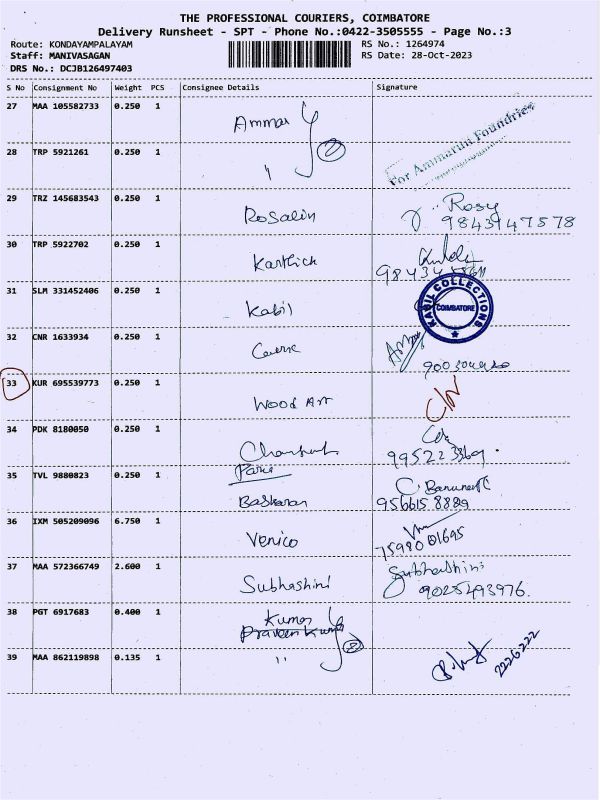 THE PROFESSIONAL COURIERS, COIMBATORE
Delivery Runsheet - SPT - Phone No.:0422-3505555 - Page No.:3
Route: KONDAYAMPALAYAM RS No.: 1264974
Staff: MANIVASAGAN RS Date: 28-Oct-2023
DRS No.: DCJB126497403
S No Consignment No Weight PCS Consignee Details Signature
27 MAA 105582733 0.250 1 Ammar
28 TRP 5921261 0.250 1 " 2 For Ammarun Foundries
29 TRZ 145683543 0.250 1 Rosalin Rosy
9843947578
30 TRP 5922702 0.250 1 Karthick
31 SLM 331452406 0.250 1 Kabil KABIL COLLECTIONS COIMBATORE
32 CNR 1633934 0.250 1
33 KUR 695539773 0.250 1 Wood Art C/N
34 PDK 8180050 0.250 1
35 TVL 9880823 0.250 1 Baskaran
956615 8889
36 IXM 505209096 6.750 1 Venico
37 MAA 572366749 2.600 1 Subhashini Subhashini
9025493976.
38 PGT 6917683 0.400 1 Kumar
Praveen Kumar
39 MAA 862119898 0.135 1 " 2 2226222